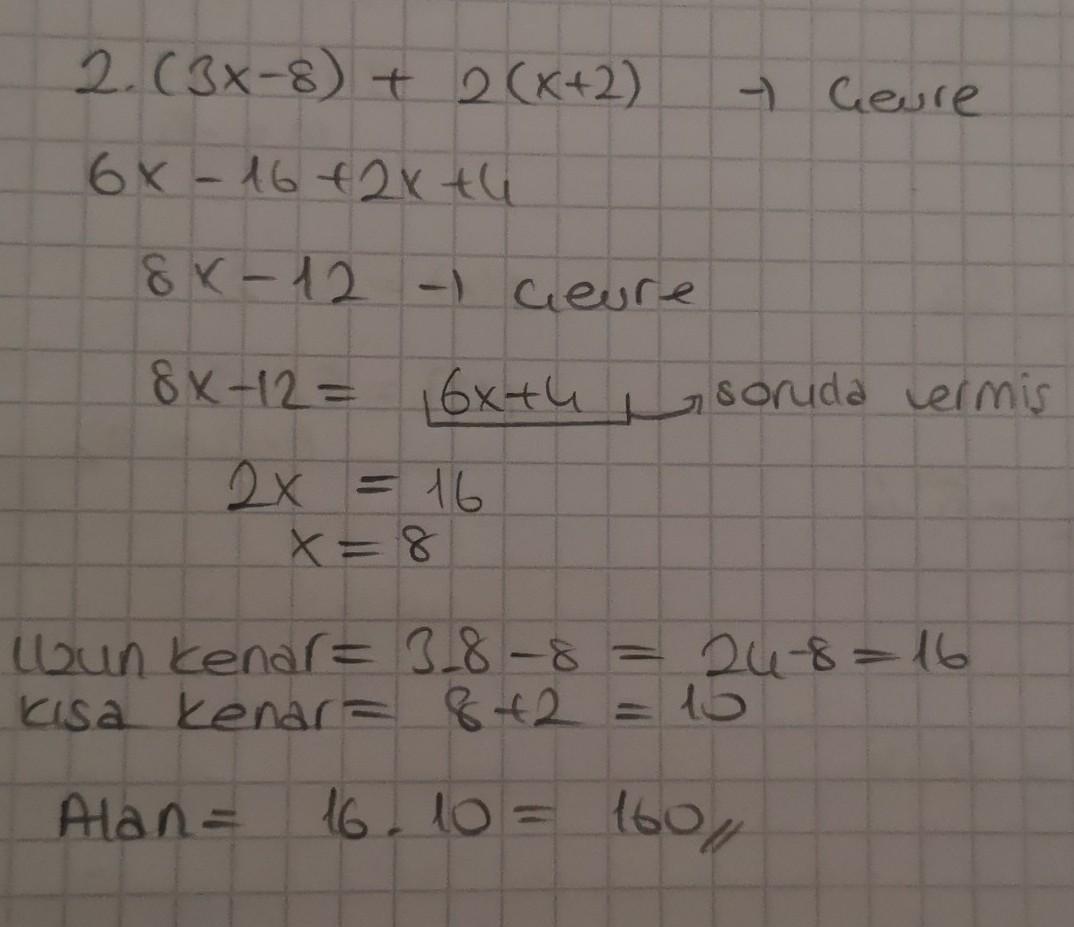 2.(3x-8) + 2(x+2) → Çevre
6x - 16 + 2x + 4
8x - 12 → Çevre
8x - 12 = 6x+4 → soruda vermis
2x = 16
x = 8
Uzun kenar = 3.8 - 8 = 24 - 8 = 16
Kısa kenar = 8 + 2 = 10
Alan = 16 . 10 = 160//